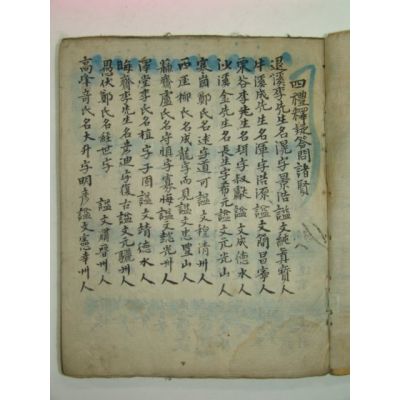 四禮釋疑答問諸賢
退溪李先生名滉字景浩謚文純真寶人
牛溪成先生名渾字浩源謚文簡昌寧人
栗谷李先生名珥字叔獻謚文成德水人
沙溪金先生名長生字希元謚文元光山人
寒岡鄭氏名逑字道可謚文穆清州人
西厓柳氏名成龍字而見謚文忠豊山人
蘇齋盧氏名守慎字寡悔謚文懿光州人
澤堂李氏名植字子固謚文靖德水人
晦齋李先生名彦迪字復古謚文元驪州人
愚伏鄭氏名経世字 謚文肅晉州人
高峰竒氏名大升字明彦謚文憲幸州人